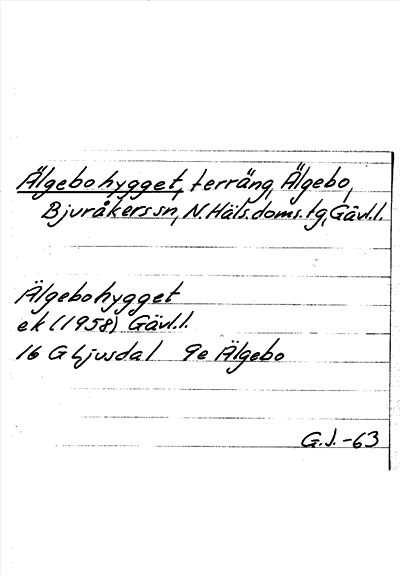 Älgebohygget, terräng, Älgebo,
Bjuråkers sn, N. Häls. doms. tg, Gävl. l.
Älgebohygget
ek (1958) Gävl. l.
16 G Ljusdal 9e Älgebo
G.J. -63